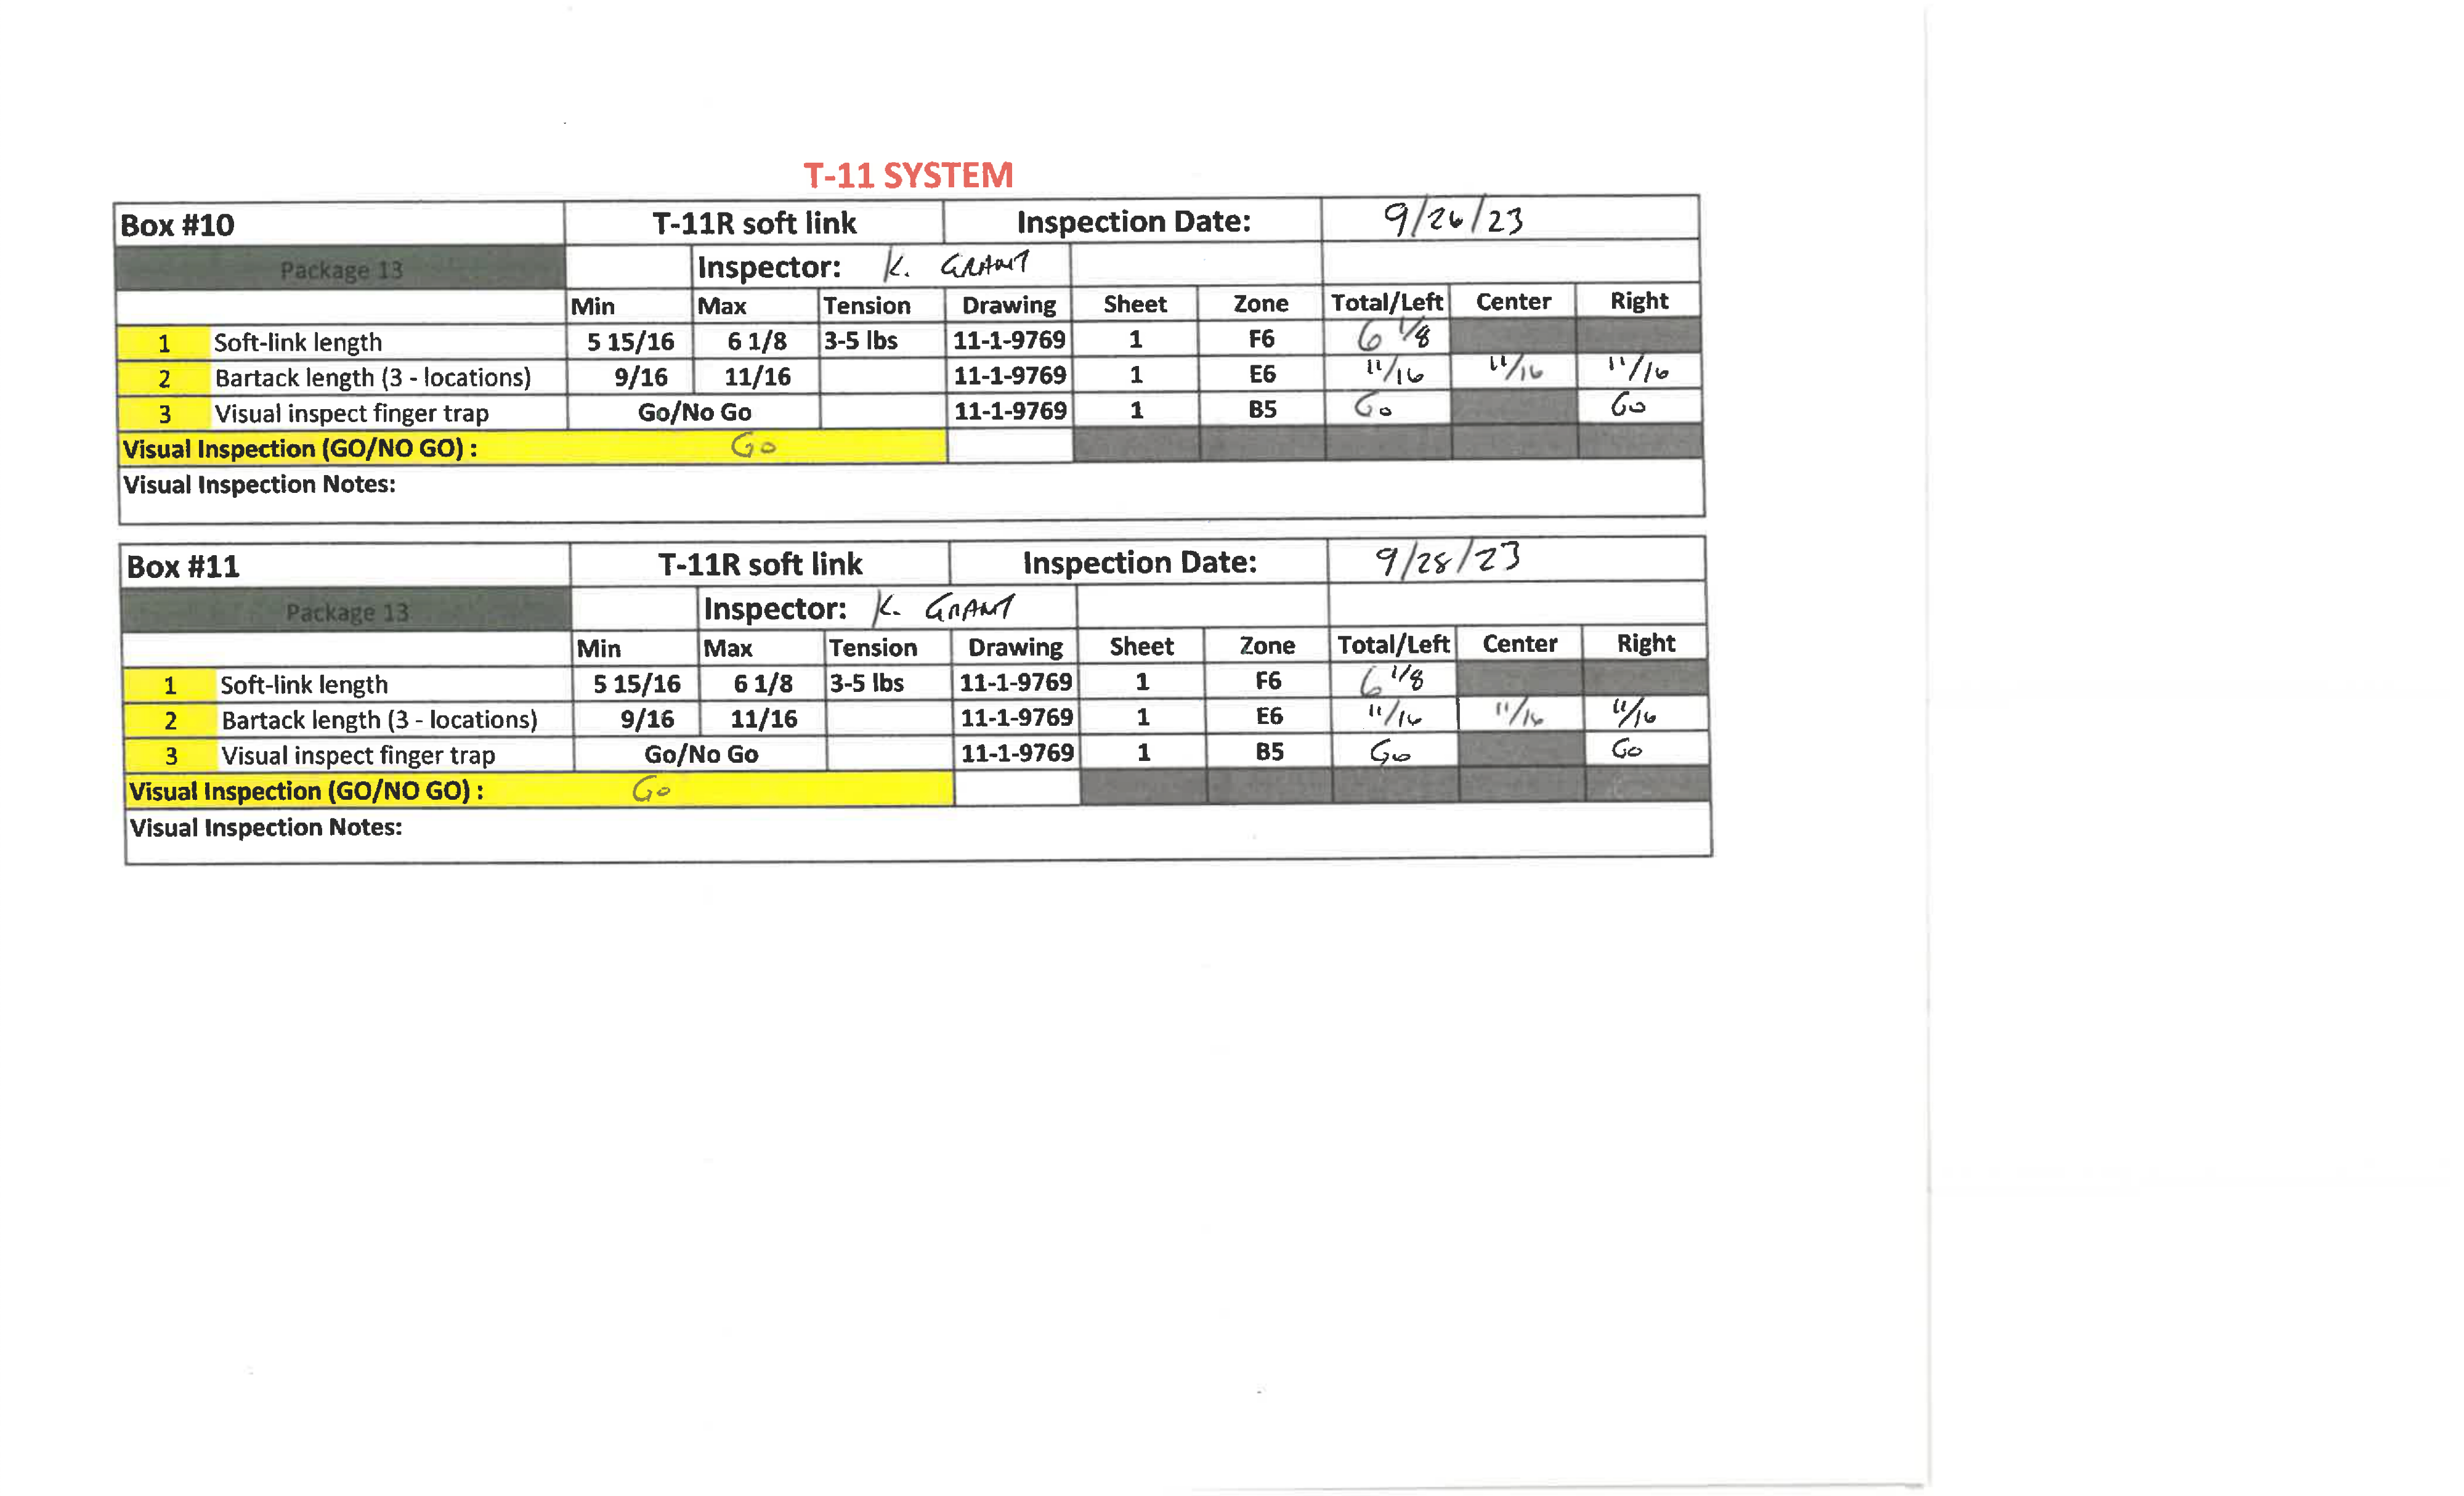 T-11 SYSTEM
Box #10 T-11R soft link Inspection Date: 9/26/23
Package 13 Inspector: K. GRANT
Min Max Tension Drawing Sheet Zone Total/Left Center Right
1 Soft-link length 5 15/16 6 1/8 3-5 lbs 11-1-9769 1 F6 6 1/8
2 Bartack length (3 - locations) 9/16 11/16 11-1-9769 1 E6 11/16 11/16 11/16
3 Visual inspect finger trap Go/No Go 11-1-9769 1 B5 Go Go
Visual Inspection (GO/NO GO) : Go
Visual Inspection Notes:
Box #11 T-11R soft link Inspection Date: 9/28/23
Package 13 Inspector: K. GRANT
Min Max Tension Drawing Sheet Zone Total/Left Center Right
1 Soft-link length 5 15/16 6 1/8 3-5 lbs 11-1-9769 1 F6 6 1/8
2 Bartack length (3 - locations) 9/16 11/16 11-1-9769 1 E6 11/16 11/16 11/16
3 Visual inspect finger trap Go/No Go 11-1-9769 1 B5 Go Go
Visual Inspection (GO/NO GO) : Go
Visual Inspection Notes: